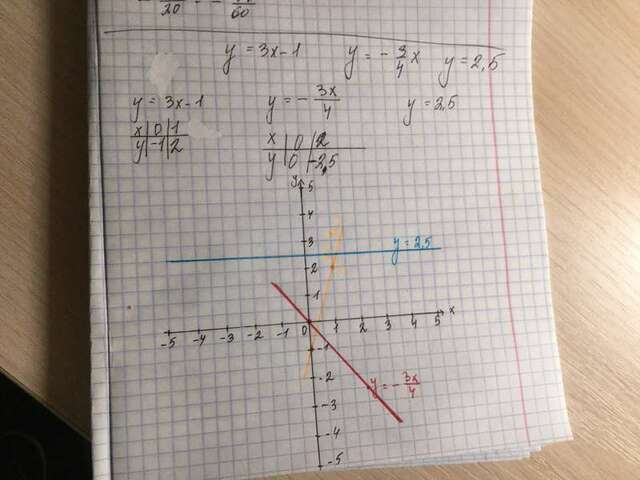 20 60
y = 3x-1 y = - 3/4 x y = 2,5
y = 3x-1 y = - 3x/4 y = 2,5
x | 0 | 1 x | 0 | 2
y | -1 | 2 y | 0 | -2,5
y 5
4
3 y = 2,5
2
1
x
-5 -4 -3 -2 -1 0 1 2 3 4 5
-1
-2 y = - 3x/4
-3
-4
-5